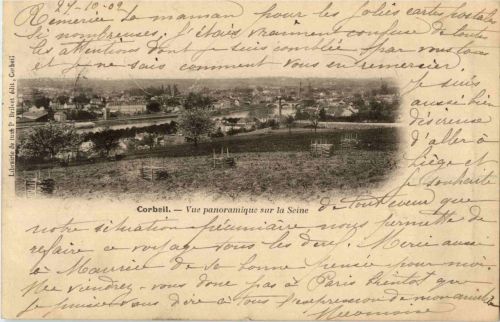 27-10-02
Remercie ta maman pour les jolies cartes postales
si nombreuses. J'étais vraiment confuse de toutes
les attentions dont je suis comblée par vous tous
et je ne sais comment vous en remercier.
Je suis
aussi bien
désireuse
d'aller à
Liège et
je souhaite
de tout coeur que
Librairie du
édit., Corbeil
Corbeil. — Vue panoramique sur la Seine
notre situation pécuniaire nous permette de
refaire ce voyage tous les deux. Merci aussi
à Maurice de sa bonne pensée pour moi.
Ne viendrez-vous donc pas à Paris bientôt que
je puisse vous dire à tous l'expression de mon amitié